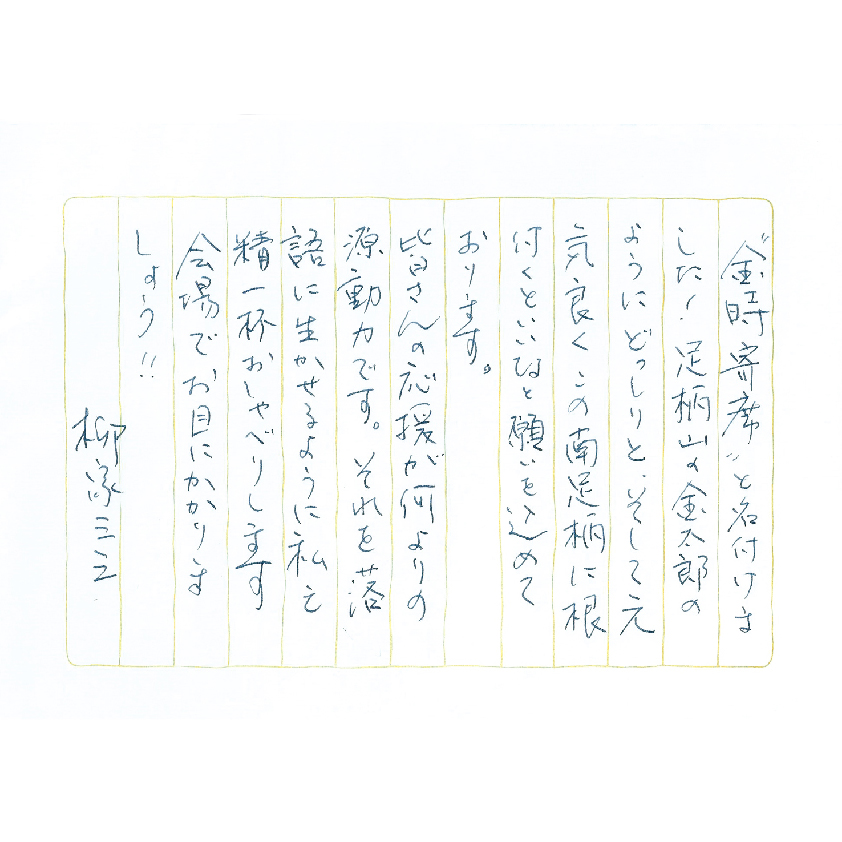 "金時寄席"と名付けま
した！足柄山の金太郎の
ようにどっしりと、そして元
気良くこの南足柄に根
付くといいなと願いを込めて
おります。
皆さんの応援が何よりの
源動力です。それを落
語に生かせるように私も
精一杯おしゃべりします
会場でお目にかかりま
しょう!!
柳家三三